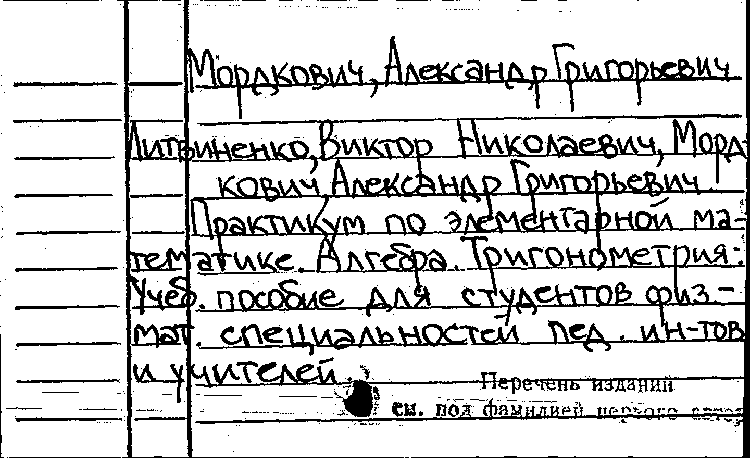 Мордкович, Александр Григорьевич
Литвиненко, Виктор Николаевич, Морд-
кович, Александр Григорьевич.
Практикум по элементарной ма-
тематике. Алгебра. Тригонометрия:
Учеб. пособие для студентов физ-
мат. специальностей пед. ин-тов
и учителей.
Перечень изданий
см. под фамилией первого автора